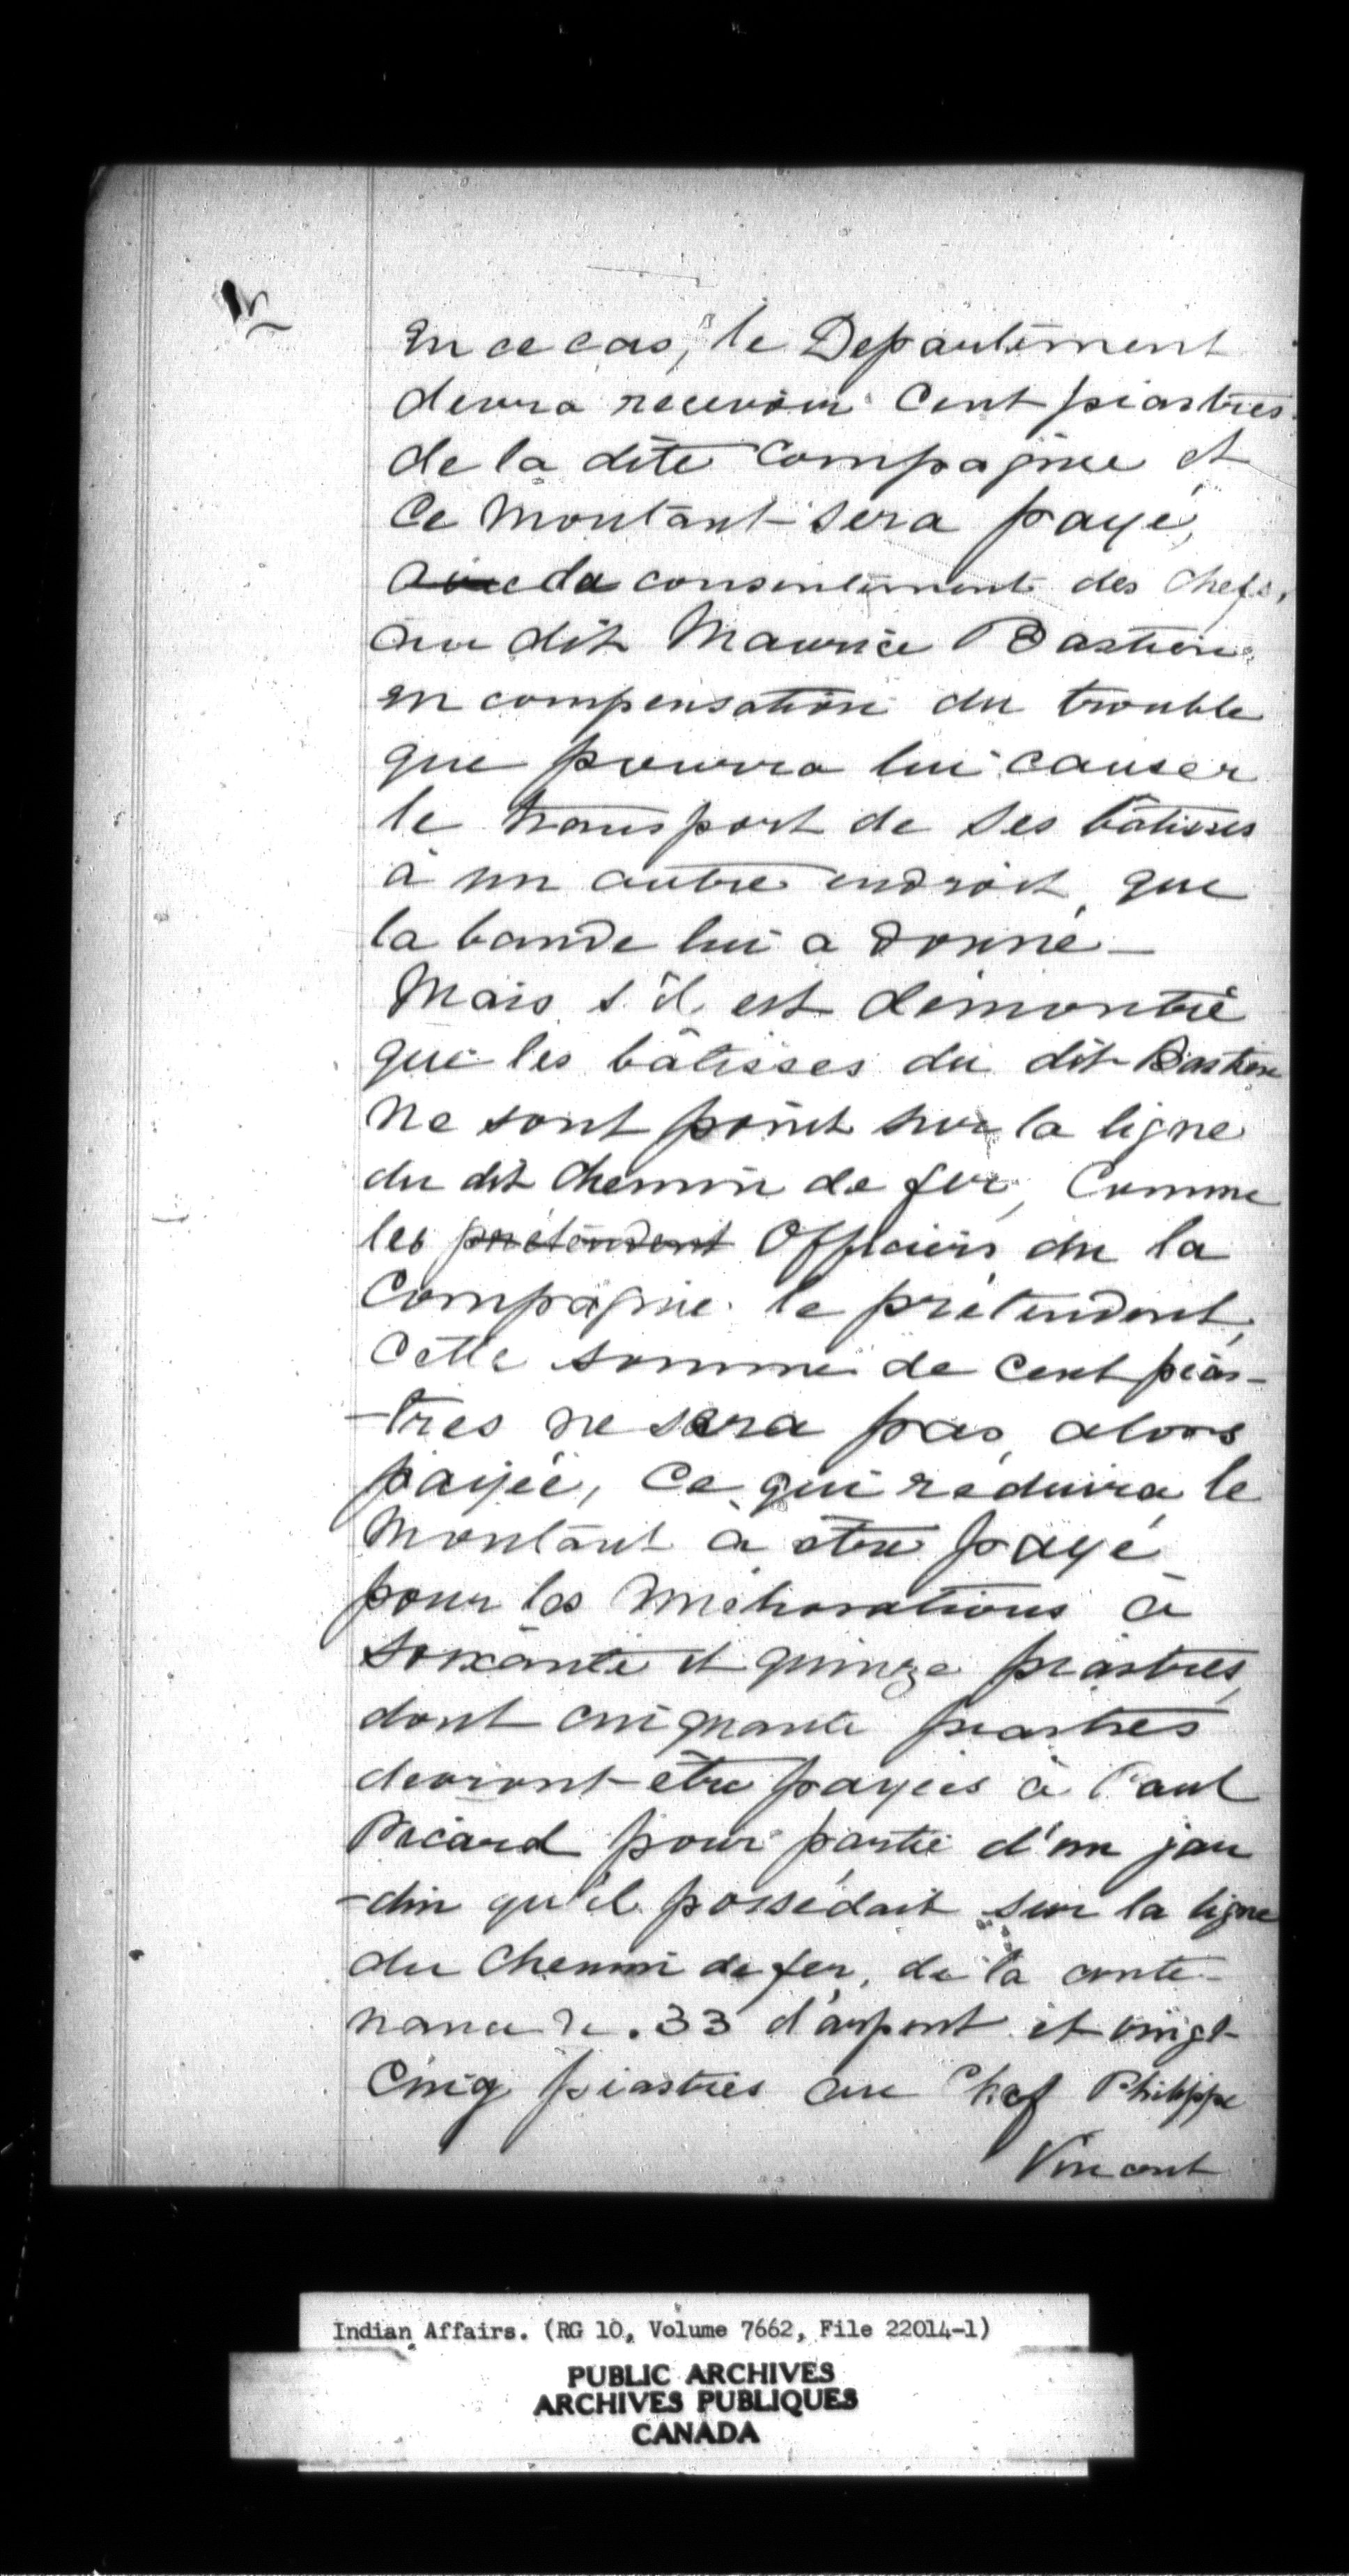 En ce cas, le Departement
devra recevoir Cent piastres
de la dite Compagnie et
Ce Montant sera payé,
consentement des Chefs,
au dit Maurice Bastien
en compensation du trouble
que pourra lui causer
le transport de ses bâtisses
à un autre endroit, que
la bande lui a donné —
Mais s'il est démontré
que les bâtisses du dit Bastien
Ne sont point sur la ligne
du dit Chemin de fer, Comme
les prétendent Officiers du la
Compagnie le prétendent,
Cette somme de Cent pias-
-tres ne sera pas alors
payée, Ce qui réduira le
Montant à être payé
pour les améliorations à
Soixante et quinze piastres,
dont cinquante piastres
devront être payées à Paul
Picard pour partie d'un jar
-din qu'il possédait sur la ligne
du Chemin de fer, de la conte-
nance de .33 d'arpent et vingt
Cinq piastres au Chef Philippe
Vincent
Indian Affairs. (RG 10, Volume 7662, File 22014-1)
PUBLIC ARCHIVES
ARCHIVES PUBLIQUES
CANADA